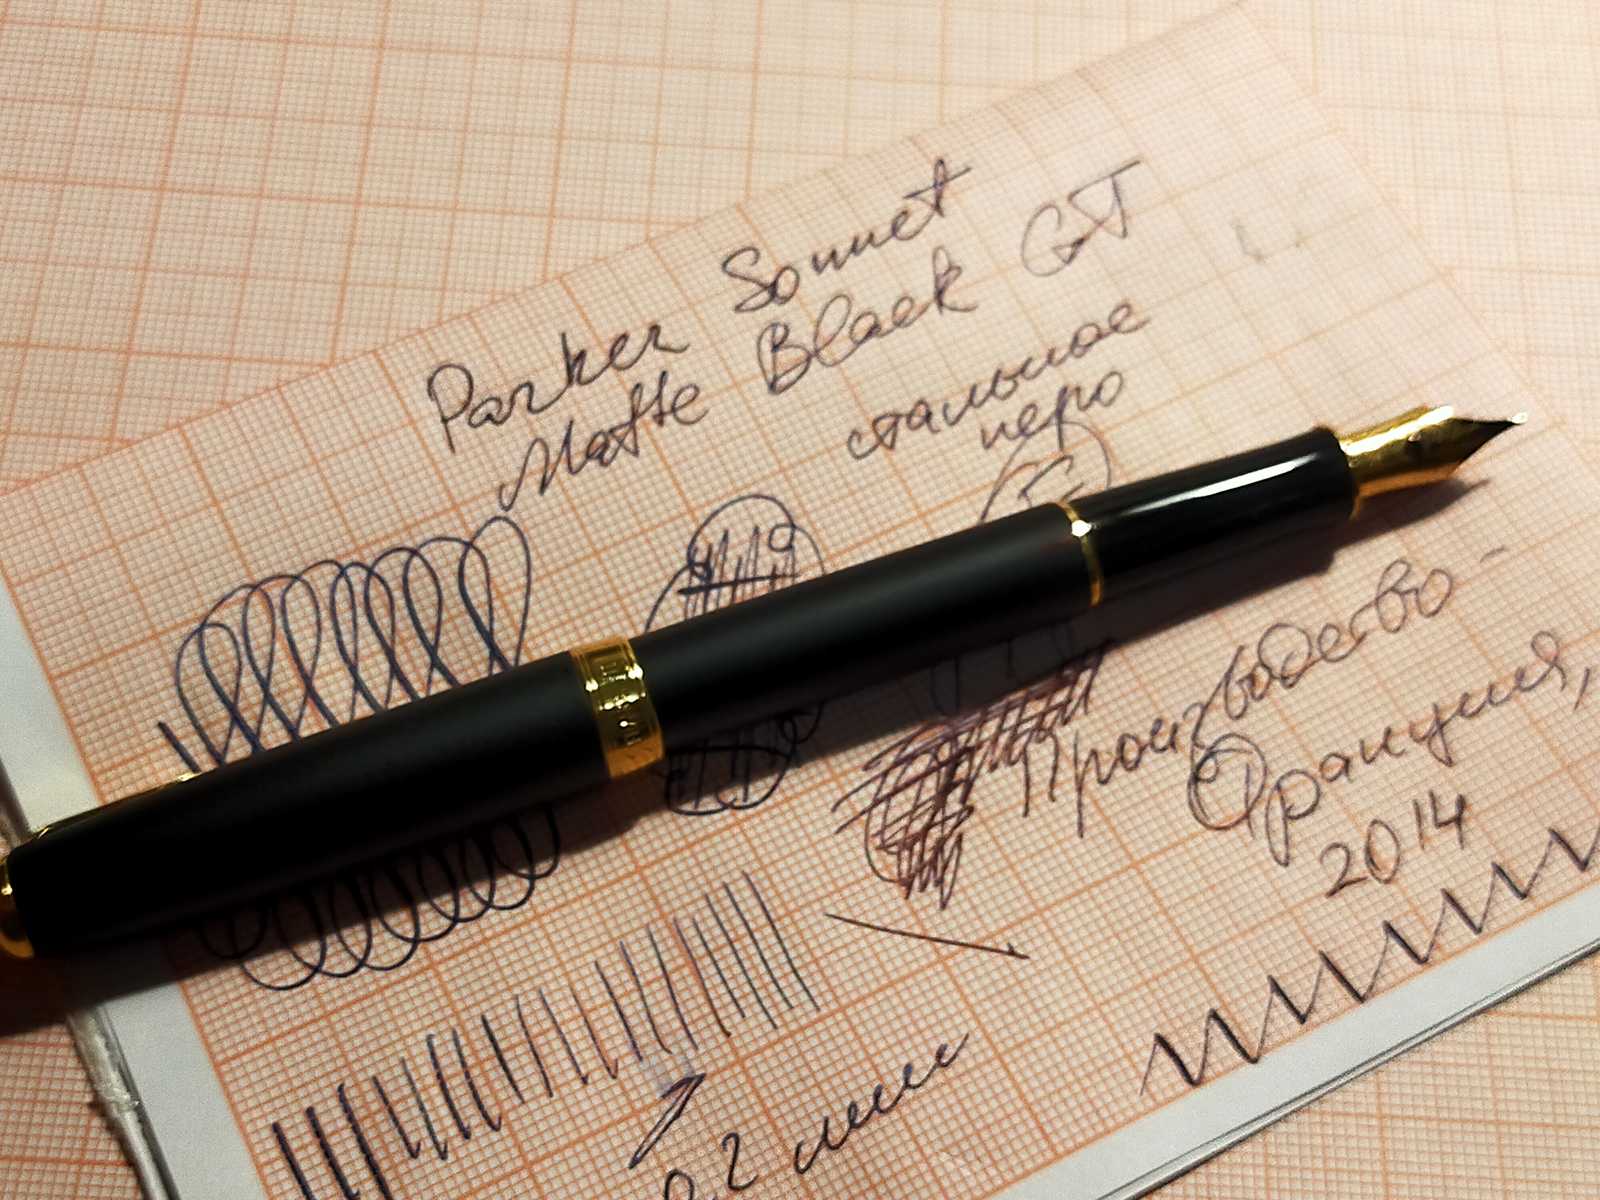 Parker Sonnet
Matte Black GT
стальное
перо
Производство -
Франция,
2014
0,2 мм